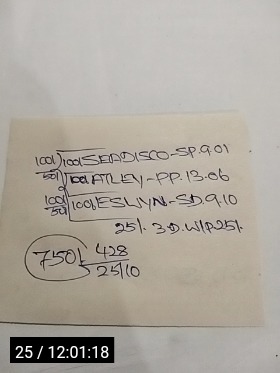 100/50) 100/ SEADISCO-SP.9.01
100/ ATLEY-PP.13.06
100/50 100/ ESLVYN-SD.9.10
25/. 3.D.W/P.25/.
750/- 428
25/10
25 / 12:01:18